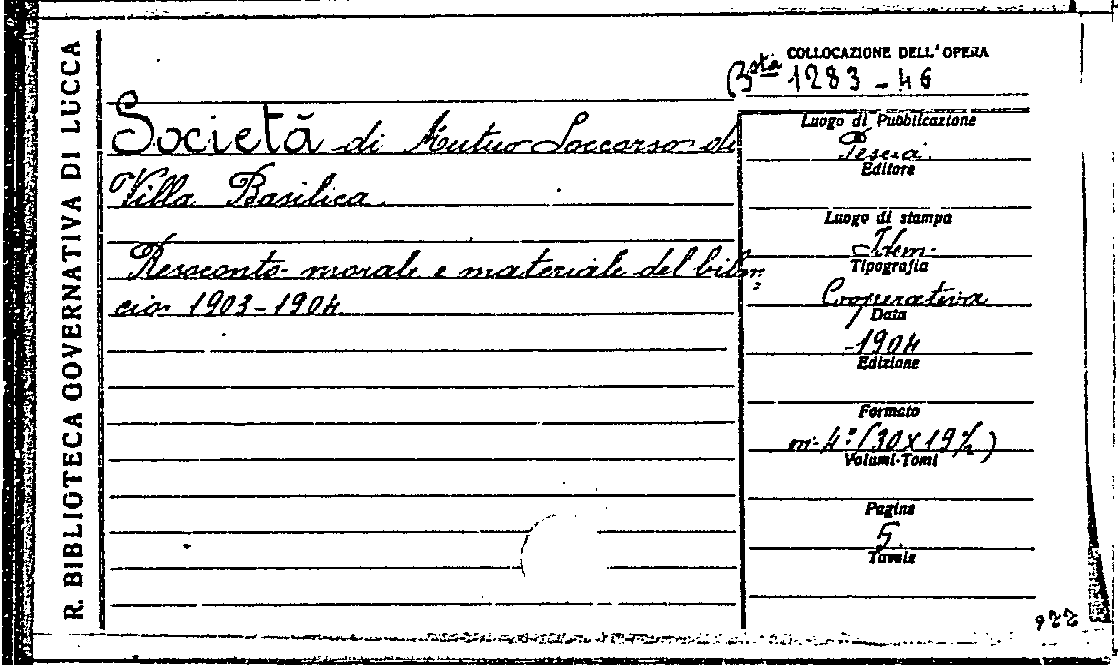 R. BIBLIOTECA GOVERNATIVA DI LUCCA
COLLOCAZIONE DELL'OPERA
Bsta 1283-46
Società di Mutuo Soccorso di
Villa Basilica.
Resoconto morale e materiale del bilan=
cio 1903-1904
Luogo di Pubblicazione
Pescia.
Editore
Luogo di stampa
Idem.
Tipografia
Cooperativa
Data
1904
Edizione
Formato
in-4° (30x19½)
Volumi-Tomi
Pagine
5.
Tavole
922